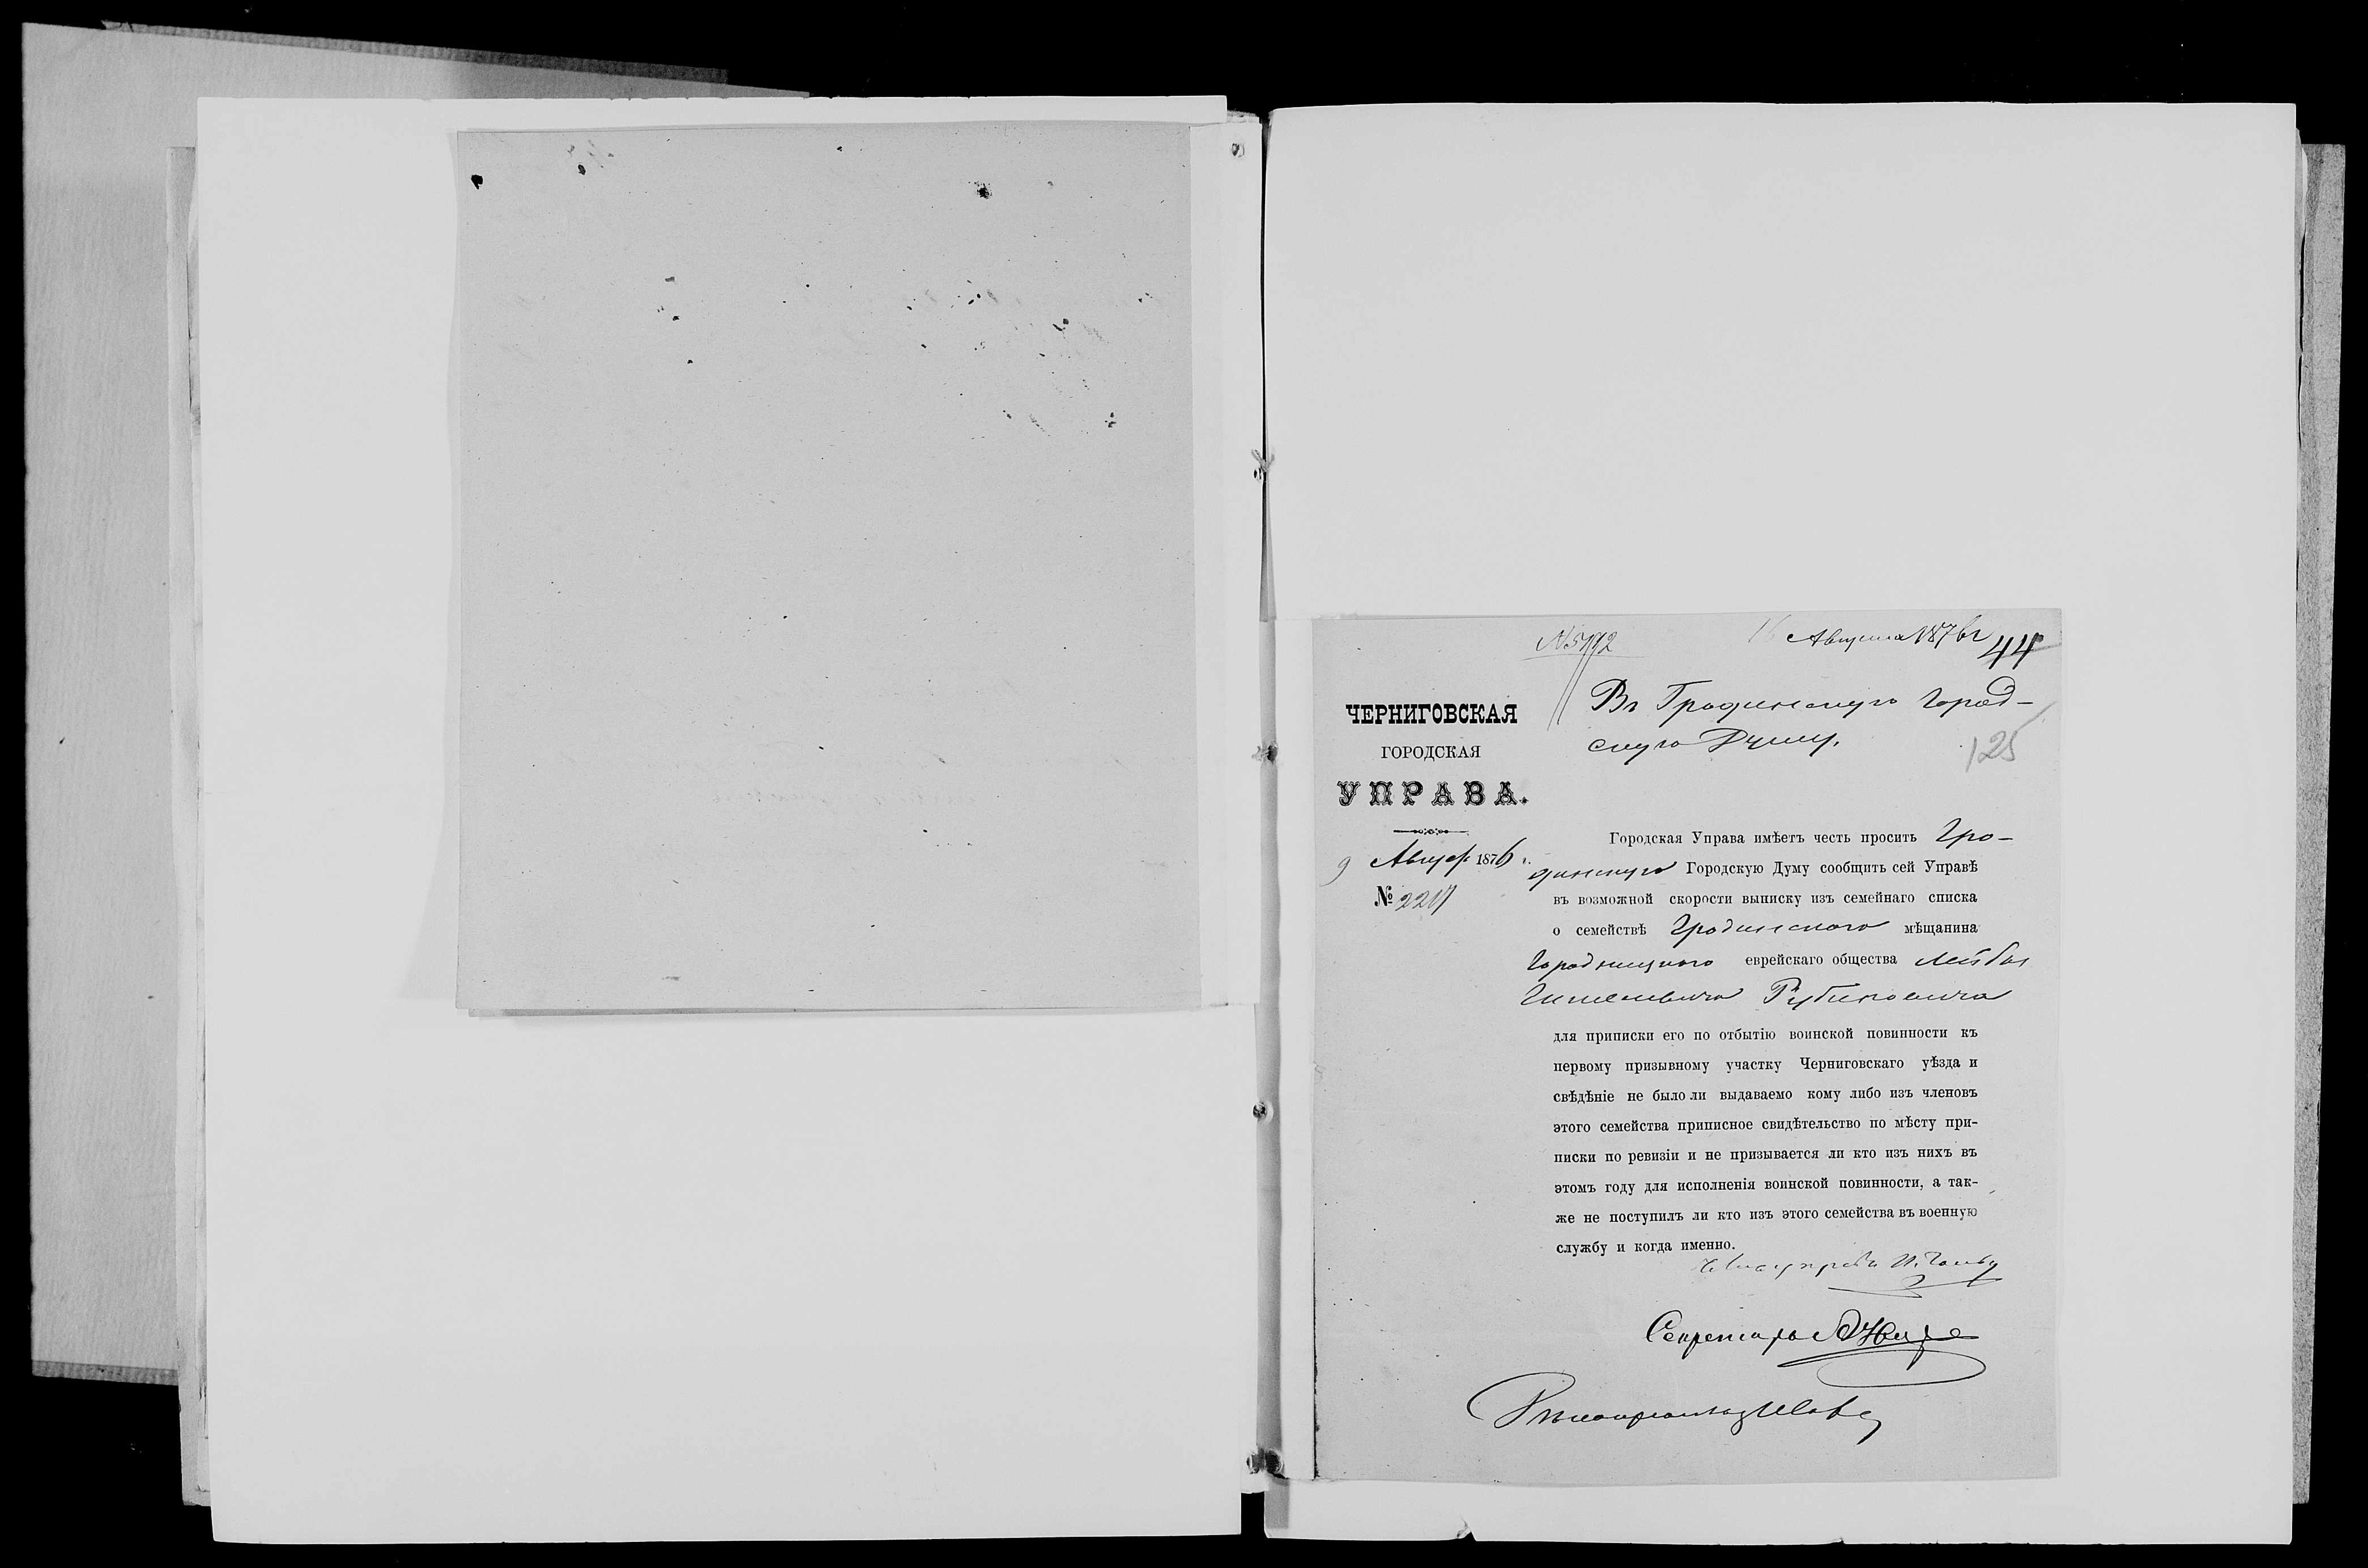 № 5192
16 Августа 1876 г
44
Въ Гродненскую Город-
скую Думу.
125
ЧЕРНИГОВСКАЯ
ГОРОДСКАЯ
УПРАВА.
9 Август 1876 г.
№ 2217
Городская Управа имѣетъ честь просить Гро-
дненскую Городскую Думу сообщить сей Управѣ
въ возможной скорости выписку изъ семейнаго списка
о семействѣ Гродненского мѣщанина
Городницкого еврейскаго общества Лейбы
Рубиновича
для приписки его по отбытію воинской повинности къ
первому призывному участку Черниговскаго уѣзда и
свѣдѣніе не было ли выдаваемо кому либо изъ членовъ
этого семейства приписное свидѣтельство по мѣсту при-
писки по ревизіи и не призывается ли кто изъ нихъ въ
этомъ году для исполненія воинской повинности, а так-
же не поступилъ ли кто изъ этого семейства въ военную
службу и когда именно.
Секретарь